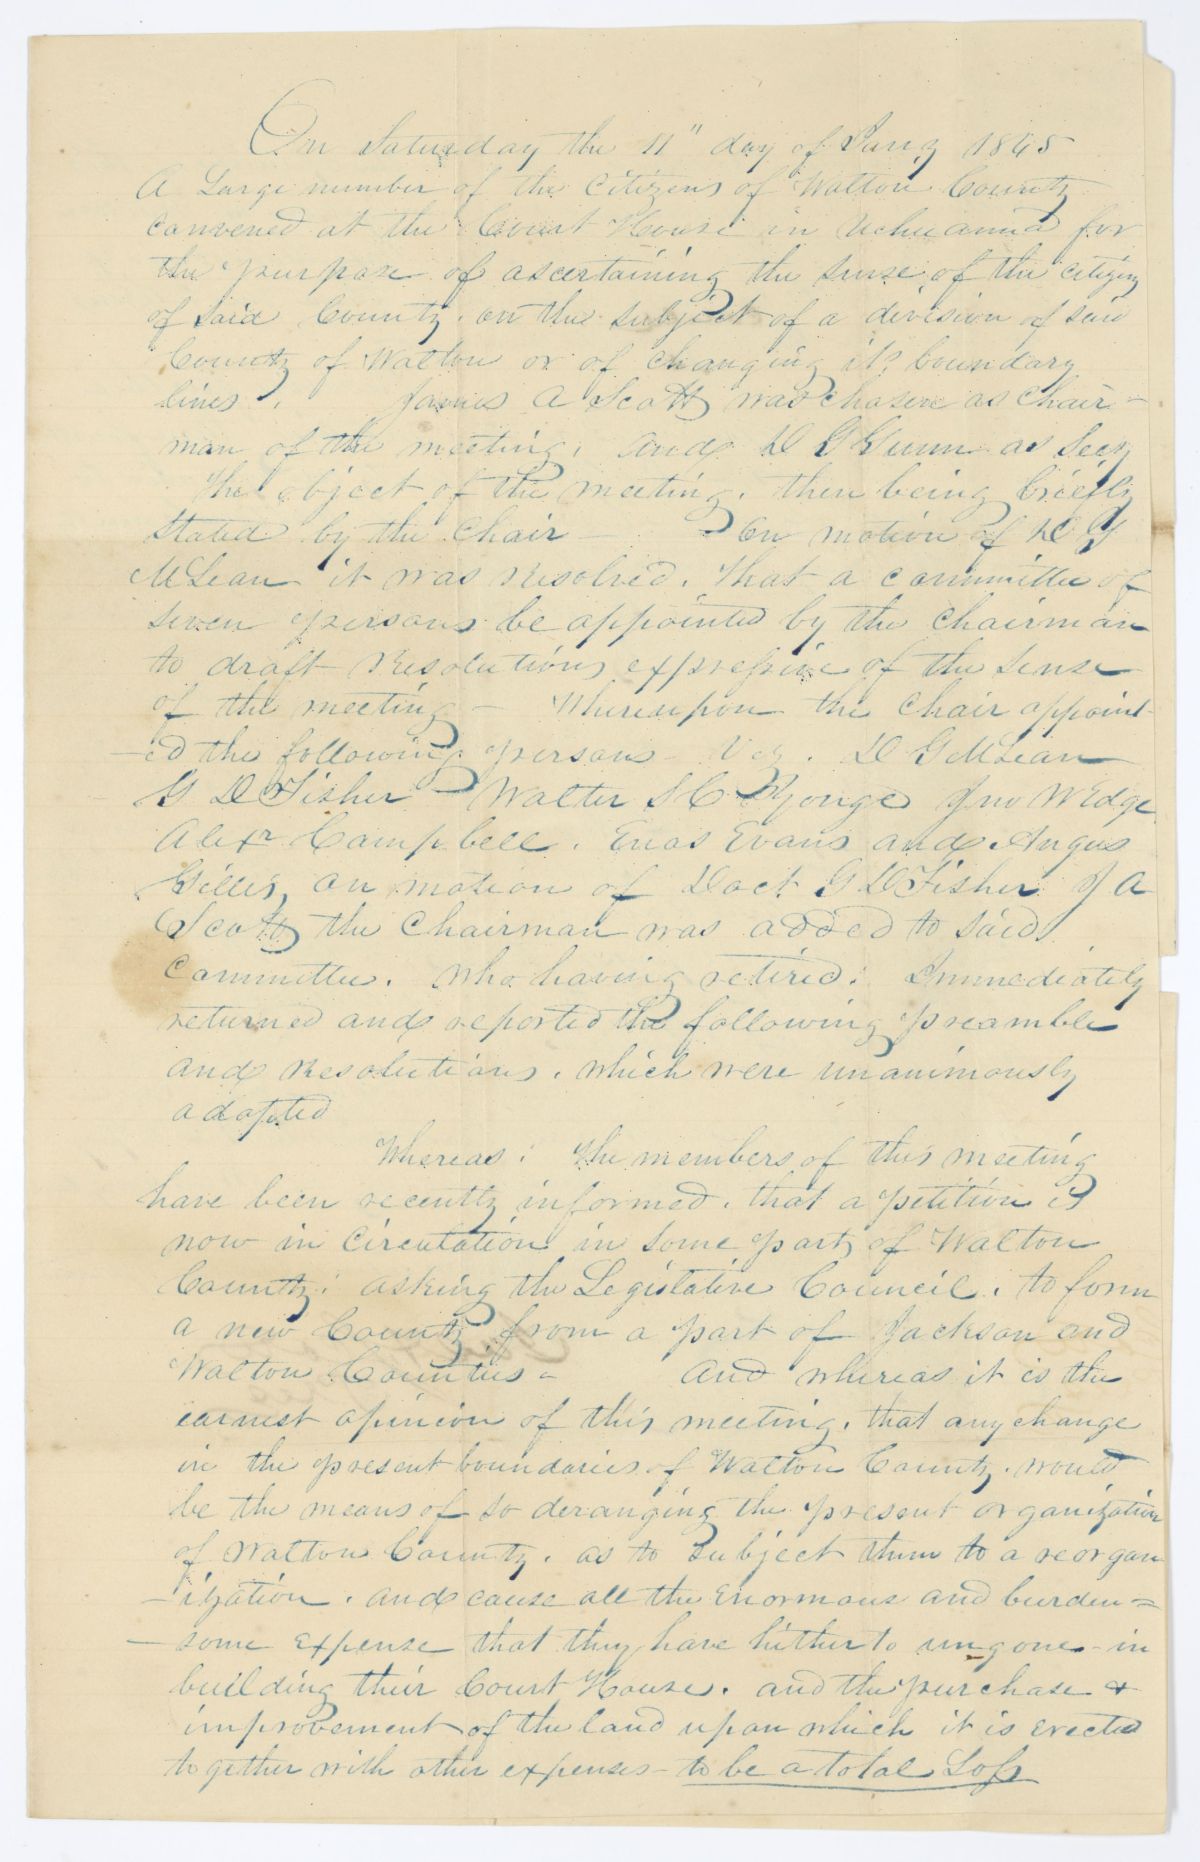 On Saturday the 11" day of Jany 1845
A Large number of the Citizens of Walton County
convened at the Court House in Ucheanna for
the purpose of ascertaining the sense of the citizens
of said County. on the subject of a division of said
County of Walton or of changing its boundary
lines. James A Scott was chosen as Chair-
man of the meeting, and D G Gunn as Secy
The object of the meeting, then being briefly
stated by the Chair - On motion of D G
McLean it was Resolved. That a committee of
seven persons be appointed by the Chairman
to draft Resolutions expressive of the sense
of the meeting - Whereupon the Chair appoint-
-ed the following persons - Viz. D G McLean
G D Fisher - Walter S C Yonge Jno W Edge
Alexr Campbell. Enos Evans and Angus
Gillis, on motion of Doct G D Fisher J A
Scott the Chairman was added to said
Committee. who having retired: Immediately
returned and reported the following preamble
and Resolutions. which were unanimously
adopted
Whereas: The members of this meeting
have been recently informed. that a petition is
now in circulation in some part of Walton
County: asking the Legislative Council. to form
a new County from a part of Jackson and
Walton Counties - And whereas it is the
earnest opinion of this meeting. that any change
in the present boundaries of Walton County. would
be the means of so deranging the present organization
of Walton County. as to subject them to a reorgan
-ization. and cause all the enormous and burden=
-some expense that they have hitherto ungone - in
building their Court House. and the purchase &
improvement of the land upon which it is erected
together with other expenses - to be a total Loss